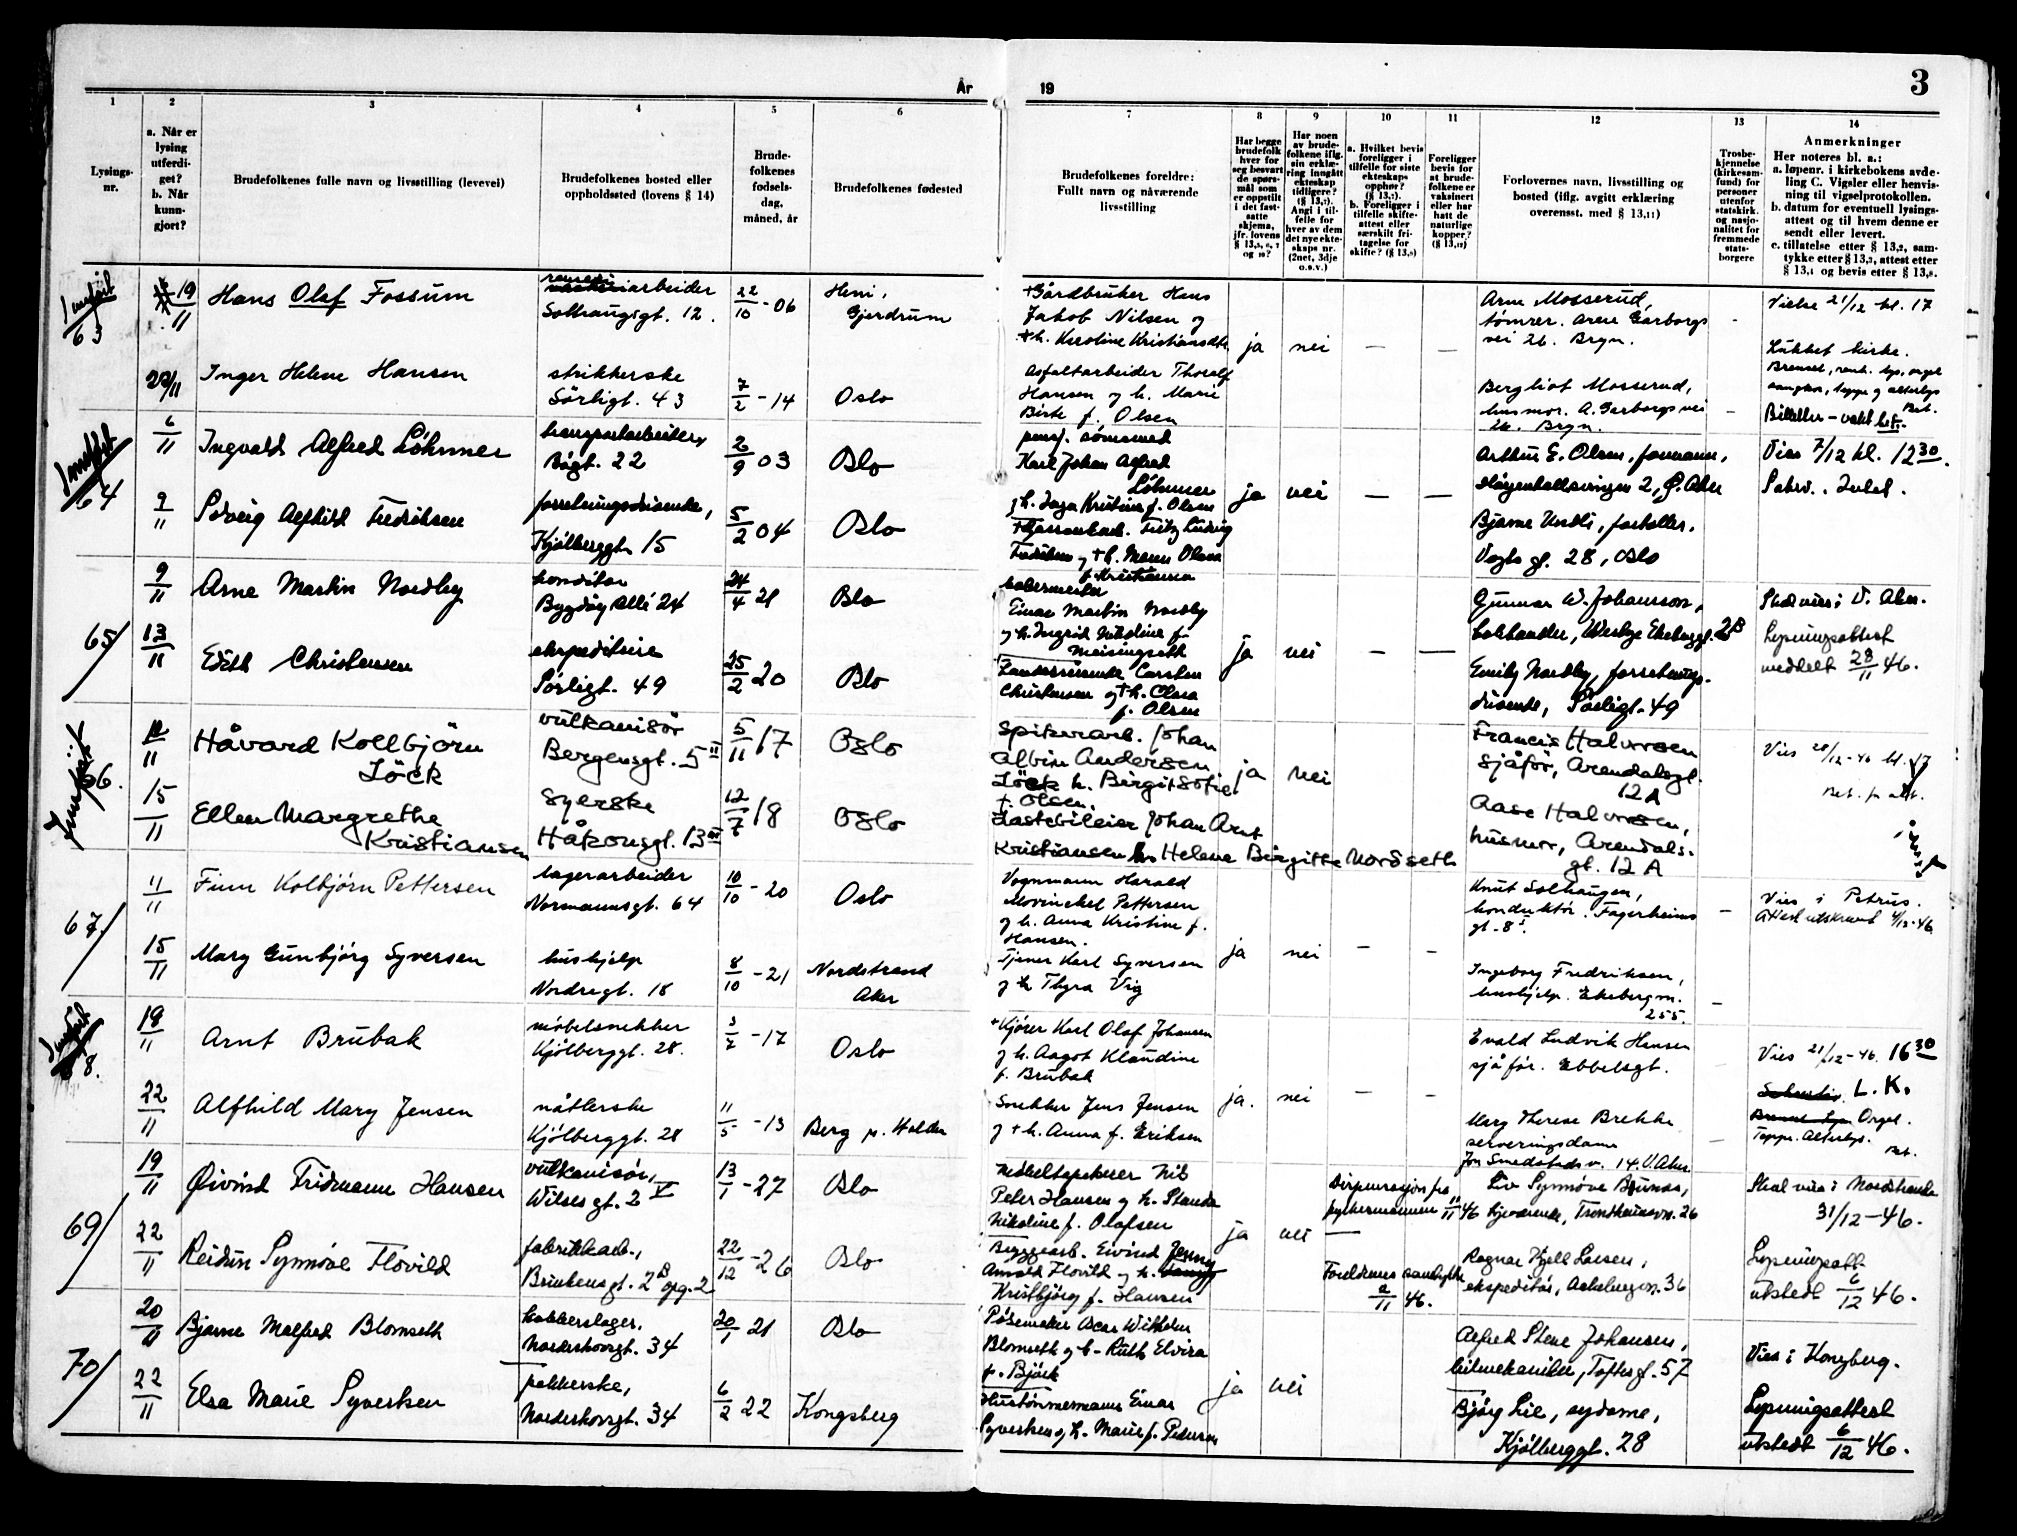 År
19
3
1
2
3
4
5
6
7
8
9
10
11
12
13
14
Lysings-
nr.
a. Når er
lysing
utferdi-
get?
b. Når
kunn-
gjort?
Brudefolkenes fulle navn og livsstilling (levevei)
Brudefolkenes bosted eller
oppholdssted (lovens § 14)
Brude-
folkenes
fødsels-
dag,
måned, år
Brudefolkenes fødested
Brudefolkenes foreldre:
Fullt navn og nåværende
livsstilling
Har begge
brudefolk
hver for
seg besvart
de spørs-
mål som
er oppstilt
i det fast-
satte
skjema,
jfr. lovens
Har noen
av brude-
folkene iflg.
sin erklæ-
ring inngått
ekteskap
tidligere?
(§ 13,7).
Angi i til-
felle for
hver av dem
det nye ekte-
skaps nr.
(2net, 3dje
o.s.v.)
a. Hvilket bevis
foreligger i
tilfelle for siste
ekteskaps
opphør?
(§ 13,7).
b. Foreligger i
tilfelle skifte-
attest eller
særskilt fri-
tagelse for
skifte? (§ 13,9)
Foreligger
bevis for
at brude-
folkene er
vaksinert
eller har
hatt de
naturlige
kopper?
(§ 13,12)
Forlovernes navn, livsstilling og
bosted (iflg. avgitt erklæring
overensst. med § 13,11)
Trosbe-
kjennelse
(kirkesam-
fund) for
personer
utenfor
statskirk.
og nasjo-
nalitet for
fremmede
stats-
borgere
Anmerkninger
Her noteres bl. a.:
a. løpenr. i kirkebokens avde-
ling C. Vigsler eller henvis-
ning til vigselprotokollen.
b. datum for eventuell lysings-
attest og til hvem denne er
sendt eller levert.
c. tillatelse etter § 13,2, sam-
tykke etter § 13,3, attest etter
§ 13,4 og bevis etter § 13,8.
63
19/11
Hans Olaf Fossum
arbeider
Solhaugsgt. 12.
22/10 - 06
Heni,
Gjerdrum
+Gårdbruker Hans
Jakob Nilsen og
+h. Karoline Kristiansdtr.
ja
nei
—
—
Arne Mosserud,
tømrer. Arne Garborgs
vei 26. Bryn.
-
Vielse 21/12 kl. 17
Lukket kirke.
Inger Helene Hansen
strikkerske
Sørligt. 43
7/2 - 14
Oslo
Asfaltarbeider Thoralf
Hansen og h. Marie
Birk f. Olsen
Bergliot Mosserud,
husmor. A. Garborgs vei
26. Bryn.
64
6/11
Ingvald Alfred Löhmner
transportarbeider,
22
2/9 03
Oslo
pensj. sömsmed
Karl Johan Alfred
Löhmner
og h. Inga Kristine f. Olsen
ja
nei
—
—
Arthur E. Olsen, formann,
2, Ø. Aker
Vies 7/12 kl. 12 30.
9/11
Solveig Alfhild Fredriksen
forretningsdrivende,
Kjølberggt. 15
5/2 04
Oslo
Fritz Ludvig
f. Kristiansen
Bjarne
Vogts gt. 28, Oslo
65/
9/11
Arne Martin Nordby
konditor
Bygdøy Allé 24
24/4 21
Oslo
Einar Martin Nordby
og h. Ingrid Nikoline f.
Meisingseth
ja
nei
—
—
Gunnar W. Johansson,
Skal vies i V. Aker.
Lysningsattest
meddelt 28/11 46.
13/11
Edith Christensen
ekspeditrise
Sørligt. 49
25/2 20
Oslo
Carsten
Christensen og +h. Clara
f. Olsen
Emily Nordby, forretnings-
drivende, Sørligt. 49
66.
12/11
Håvard Kollbjörn
Löck
vulkanisör
Bergensgt. 5 II
5/11 17
Oslo
Spikerarb. Johan
Albin Andersen
Löck h. Birgit Sofie
f. Olsen.
ja
nei
Francis Halvorsen
Sjåför, Arendalsgt.
12A
Vies 28/12-46 kl. 17
15/11
Ellen Margrethe
Kristiansen
Syerske
Håkonsgt. 13 III
12/7 18
Oslo
Lastebileier Johan Arnt
Kristiansen h. Helene Birgitte Nordseth
Aase Halvorsen,
husmor, Arendals-
gt. 12 A
67/
11/11
Finn Kolbjørn Pettersen
lagerarbeider
Normannsgt. 64
10/10 - 20
Oslo
Vognmann Harald
Movinckel Pettersen
og h. Anna Kristine f.
Hansen.
ja
nei
—
-
Knut Solhaugen,
konduktør. Fagerheims
gt. 8.
-
Vies i Petrus.
Attest utskrevet 4/12-46
15/11
Mary Gunbjørg Syversen
hushjelp
Nordregt. 18
8/10 - 21
Nordstrand
Aker
Tjener Karl Syversen
og h. Thyra Vig
Ingeborg Fredriksen,
hushjelp. Ekebergvn.
255.
-
68.
18/11
Arnt Brubak
møbelsnekker
Kjølberggt. 28.
- 17
Oslo
+Kjører Karl Olaf Johansen
og h. Aagot Klaudine
f. Brubak
ja.
nei
—
-
Evald Ludvik Hansen
sjåfør. Ebbelsgt.
Vies 21/12-46. 16 30
L. K.
Orgel.
Alterlys.
22/11
Alfhild Mary Jensen
nåtlerske
Kjølberggt. 28
11/5 - 13
Berg p. Halden
Snekker Jens Jensen
og +h. Anna f. Eriksen
Mary Therese Brekke
serveringsdame
Jon Smedstads v. 14. V. Aker
69/
19/11
Øivind Fridmann Hansen
vulkanisör,
Wilsesgt. 2 V
13/1 - 27
Oslo
Møbeltapetserer Nils
Peter Hansen og h.
Nikoline f. Olafsen
ja
nei
Dispensasjon fra
fylkesmannen 11/11 46
—
Liv Synnøve
Trondheimsvn. 26
Skal vies i Nordstrand
31/12 - 46.
22/11
Reidun Synnöve Flovild
fabrikkarb.,
Brinkensgt. 2 B opg. 2
22/12 - 26
Oslo
Byggearb. Eivind
Arnold Flovild og h. Jenny
Kristbjörg f. Hansen
Foreldrenes samtykke
2/11 46.
Ragnar Kjell Larsen,
ekspeditör, 36
Lysningsatt.
utstedt 6/12 46.
70/
20/11
Bjarne Malfred Blomseth
kobberslager,
Norderhovsgt. 34
20/1 21
Oslo
Pølsemaker Oscar Wilhelm
Blomseth og h. Ruth Elvira
f. Björk
ja
nei
Alfred Johansen,
bilmekaniker, Toftesgt. 57
Vies i Kongsberg.
22/11
Elsa Marie Syversen
pakkerske,
Norderhovsgt. 34
6/2 22
Kongsberg
Hustömmermann Einar
Syversen og h. Marie f. Pedersen
Bjørg Lie, sydame,
Kjølberggt. 28
Lysningsattest
utstedt 6/12 46.